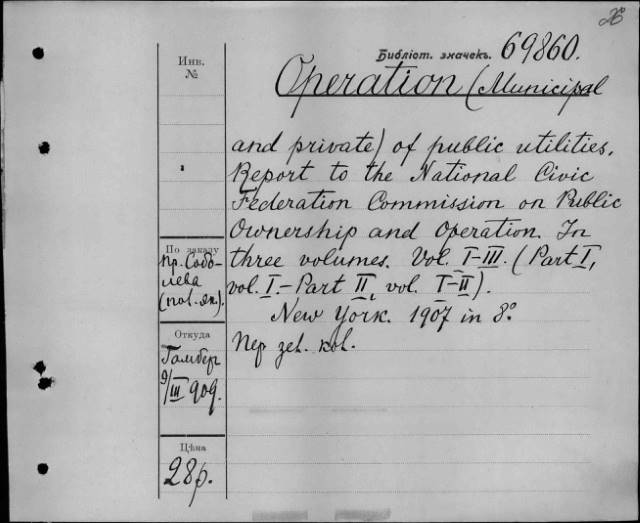 Библіот. значекъ. 69860.
Operation (Municipal
and private) of public utilities.
Report to the National Civic
Federation Commission on Public
Ownership and Operation. In
three volumes. Vol. I-III. (Part I,
vol. I.-Part II, vol. I-II).
New York. 1907 in 8º
Пер. зел. кол.
Инв.
№
По заказу
пр. Собо-
лева
(пол. эк.).
Откуда
Гамбер
9/III 909.
Цѣна
28р.